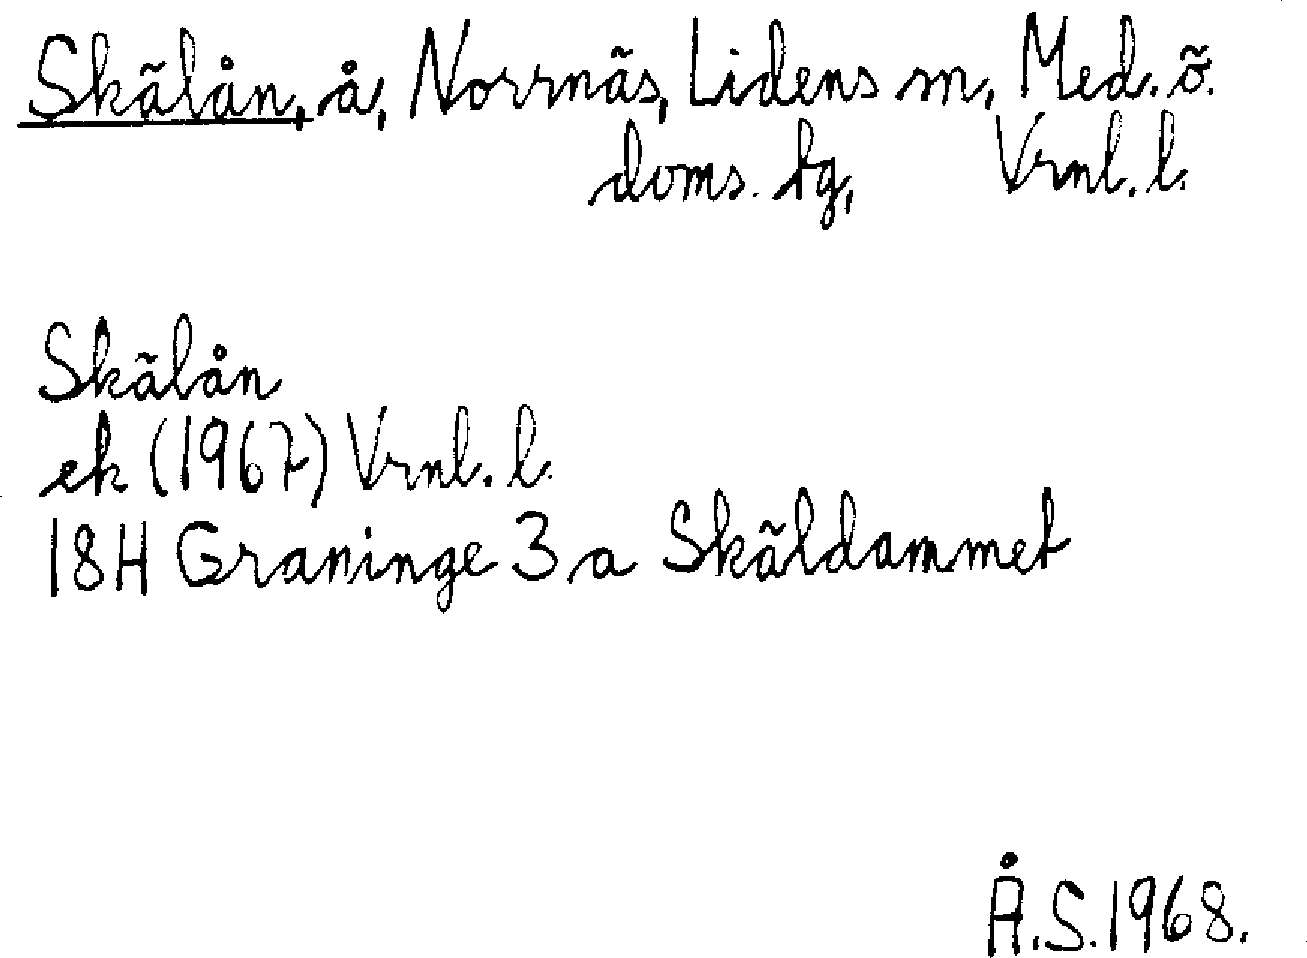 Skälån, å, Norrnäs, Lidens sn, Med. ö.
doms. tg, Vrnl. l.
Skälån
ek (1967) Vrnl. l.
18H Graninge 3 a Skäldammet
Å.S. 1968.